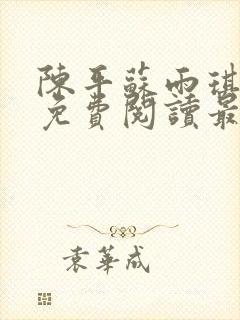 陳平蘇雨琪
免費閱讀最
袁華成